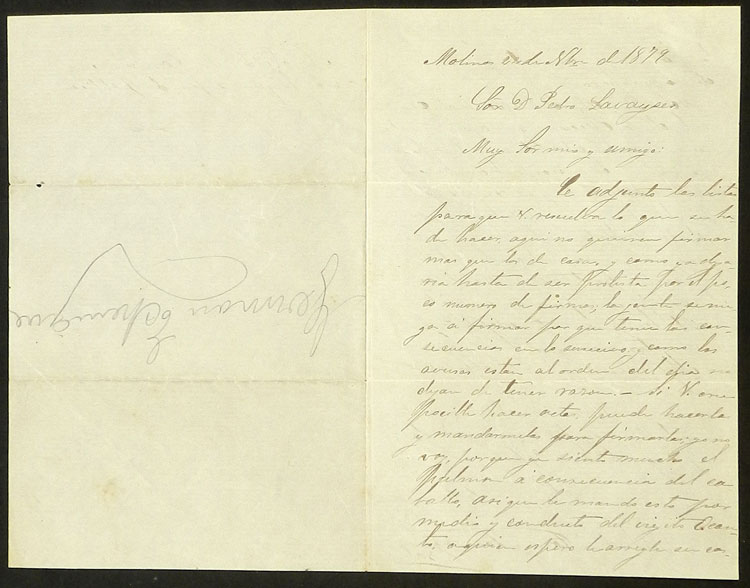 Molinos de Nbre de 1879
Sor. D. Pedro Lavaysse
Muy Sor mio y amigo:
Le adjunto las listas
para que V. resuelva lo que se ha
de hacer, aqui no quieren firmar
mas que los de casa, y como ya deja
ria hasta de ser protesta por el po
co numero de firmas, la gente se nie
ga á firmar por que teme las con
secuencias en lo sucesivo, y como los
abusos estan al orden del dia no
dejan de tener razon. — Si V. cree
pocible hacer acta, puede hacerla
y mandarmela para firmarla; yo no
voy, porque ya siento mucho el
pulmon á consecuencia del ca
ballo, asi que le mando esto por
medio y conducto del viejito
to, a quien espero le arregle su co-
German Echenique